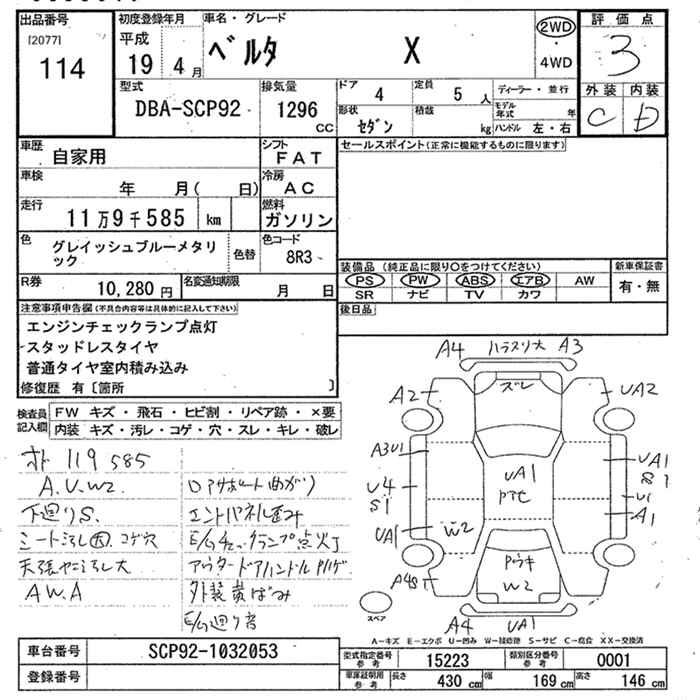 出品番号
[2077]
114
初度登録年月
平成
19 4 月
車名・グレード
ベルタ X
2WD
・
4WD
評価点
3
外装 内装
C D
型式
DBA-SCP92
排気量
1296
CC
ドア 4
定員 5 人
形状 セダン
積載 kg
ディーラー・並行
モデル年式 年
ハンドル 左・右
車歴
自家用
シフト
FAT
セールスポイント(正常に機能するものに限ります)
車検
年 月( 日)
冷房
AC
走行
11万9千585 km
燃料
ガソリン
色
グレイッシュブルーメタリ
ック
色替
色コード
8R3
R券
10,280 円
名変通知期限
月 日
装備品(純正品に限り○をつけてください)
PS PW ABS エアB AW
SR ナビ TV カワ
新車保証書
有・無
後日品
注意事項申告欄(不具合内容等は具体的に記入して下さい)
エンジンチェックランプ点灯
スタッドレスタイヤ
普通タイヤ室内積み込み
修復歴 有〔箇所 〕
検査員
記入欄
FW キズ・飛石・ヒビ割・リペア跡・×要
内装 キズ・汚レ・コゲ・穴・スレ・キレ・破レ
119585
A.U.W2.
下廻りS.
コゲ穴
天張ヤニ汚レ大
A W.A
エンドパネル歪み
E/Gチェックランプ点火丁
アウタードアハンドル
外装黄ばみ
E/G廻り音
A4 A3
ズレ
A2 UA2
A3U1
U4
S1
UA1
UA1
W2
UA1
S1
U1
A1
W2
A4S1
A4 UA1
スペア
A-キズ E-エクボ U-凹み W-補修跡 S-サビ C-腐食 XX-交換済
車台番号
SCP92-1032053
登録番号
型式指定番号
参考
15223
類別区分番号
参考
0001
車庫証明用
参考
長さ 430 cm
幅 169 cm
高さ 146 cm